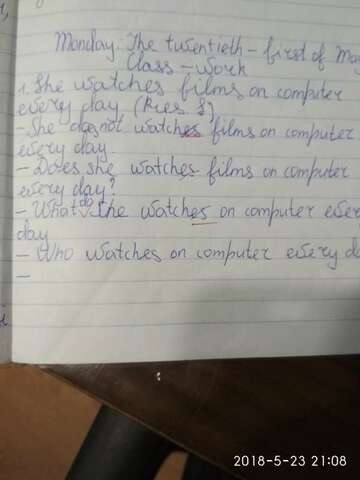 Monday. The twentieth - first of Ma
Class - work
1. She watches films on computer
every day (Pres. S)
- She does not watches films on computer
every day.
- Does she watches films on computer
every day?
- What do she watches on computer ever
day
- Who watches on computer every d
-
2018-5-23 21:08